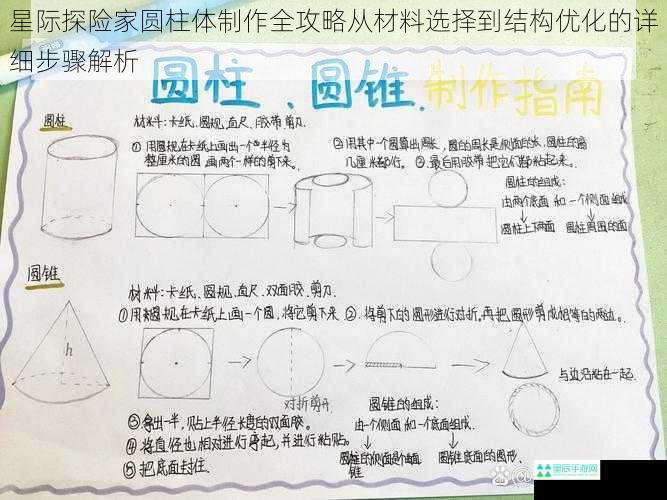 星际探险家圆柱体制作全攻略从材料选择到结构优化的详
细步骤解析
圆柱、圆锥.制作指南
圆柱
材料:卡纸、圆规、直尺、胶带剪刀.
①用圆规在卡纸上画出一个半径为
整厘米的圆 画两个一样的剪下来。
②用其中一个圆算出周长,圆的周长是侧面的长,圆柱的高
③最后用胶带把它们都粘起来。
圆柱的组成:
由两个底面 和 一个侧面 组成
圆柱上下两面 圆柱周围的面
圆锥
h
材料:卡纸、圆规、直尺、双面胶、剪刀.
①用圆规在卡纸上画一个圆,将它剪下来
②.将剪下的圆形进行对折。再把圆形剪成相等的两边。
对折剪开
与边沿粘在一起.
③拿出一半,贴上半径长度的双面胶。
④将直径也相对进行厚起,并进行粘贴。
⑤把底面封住。
圆锥的组成:
由一个侧面 和 一个底面组成.
圆锥底面的图形.